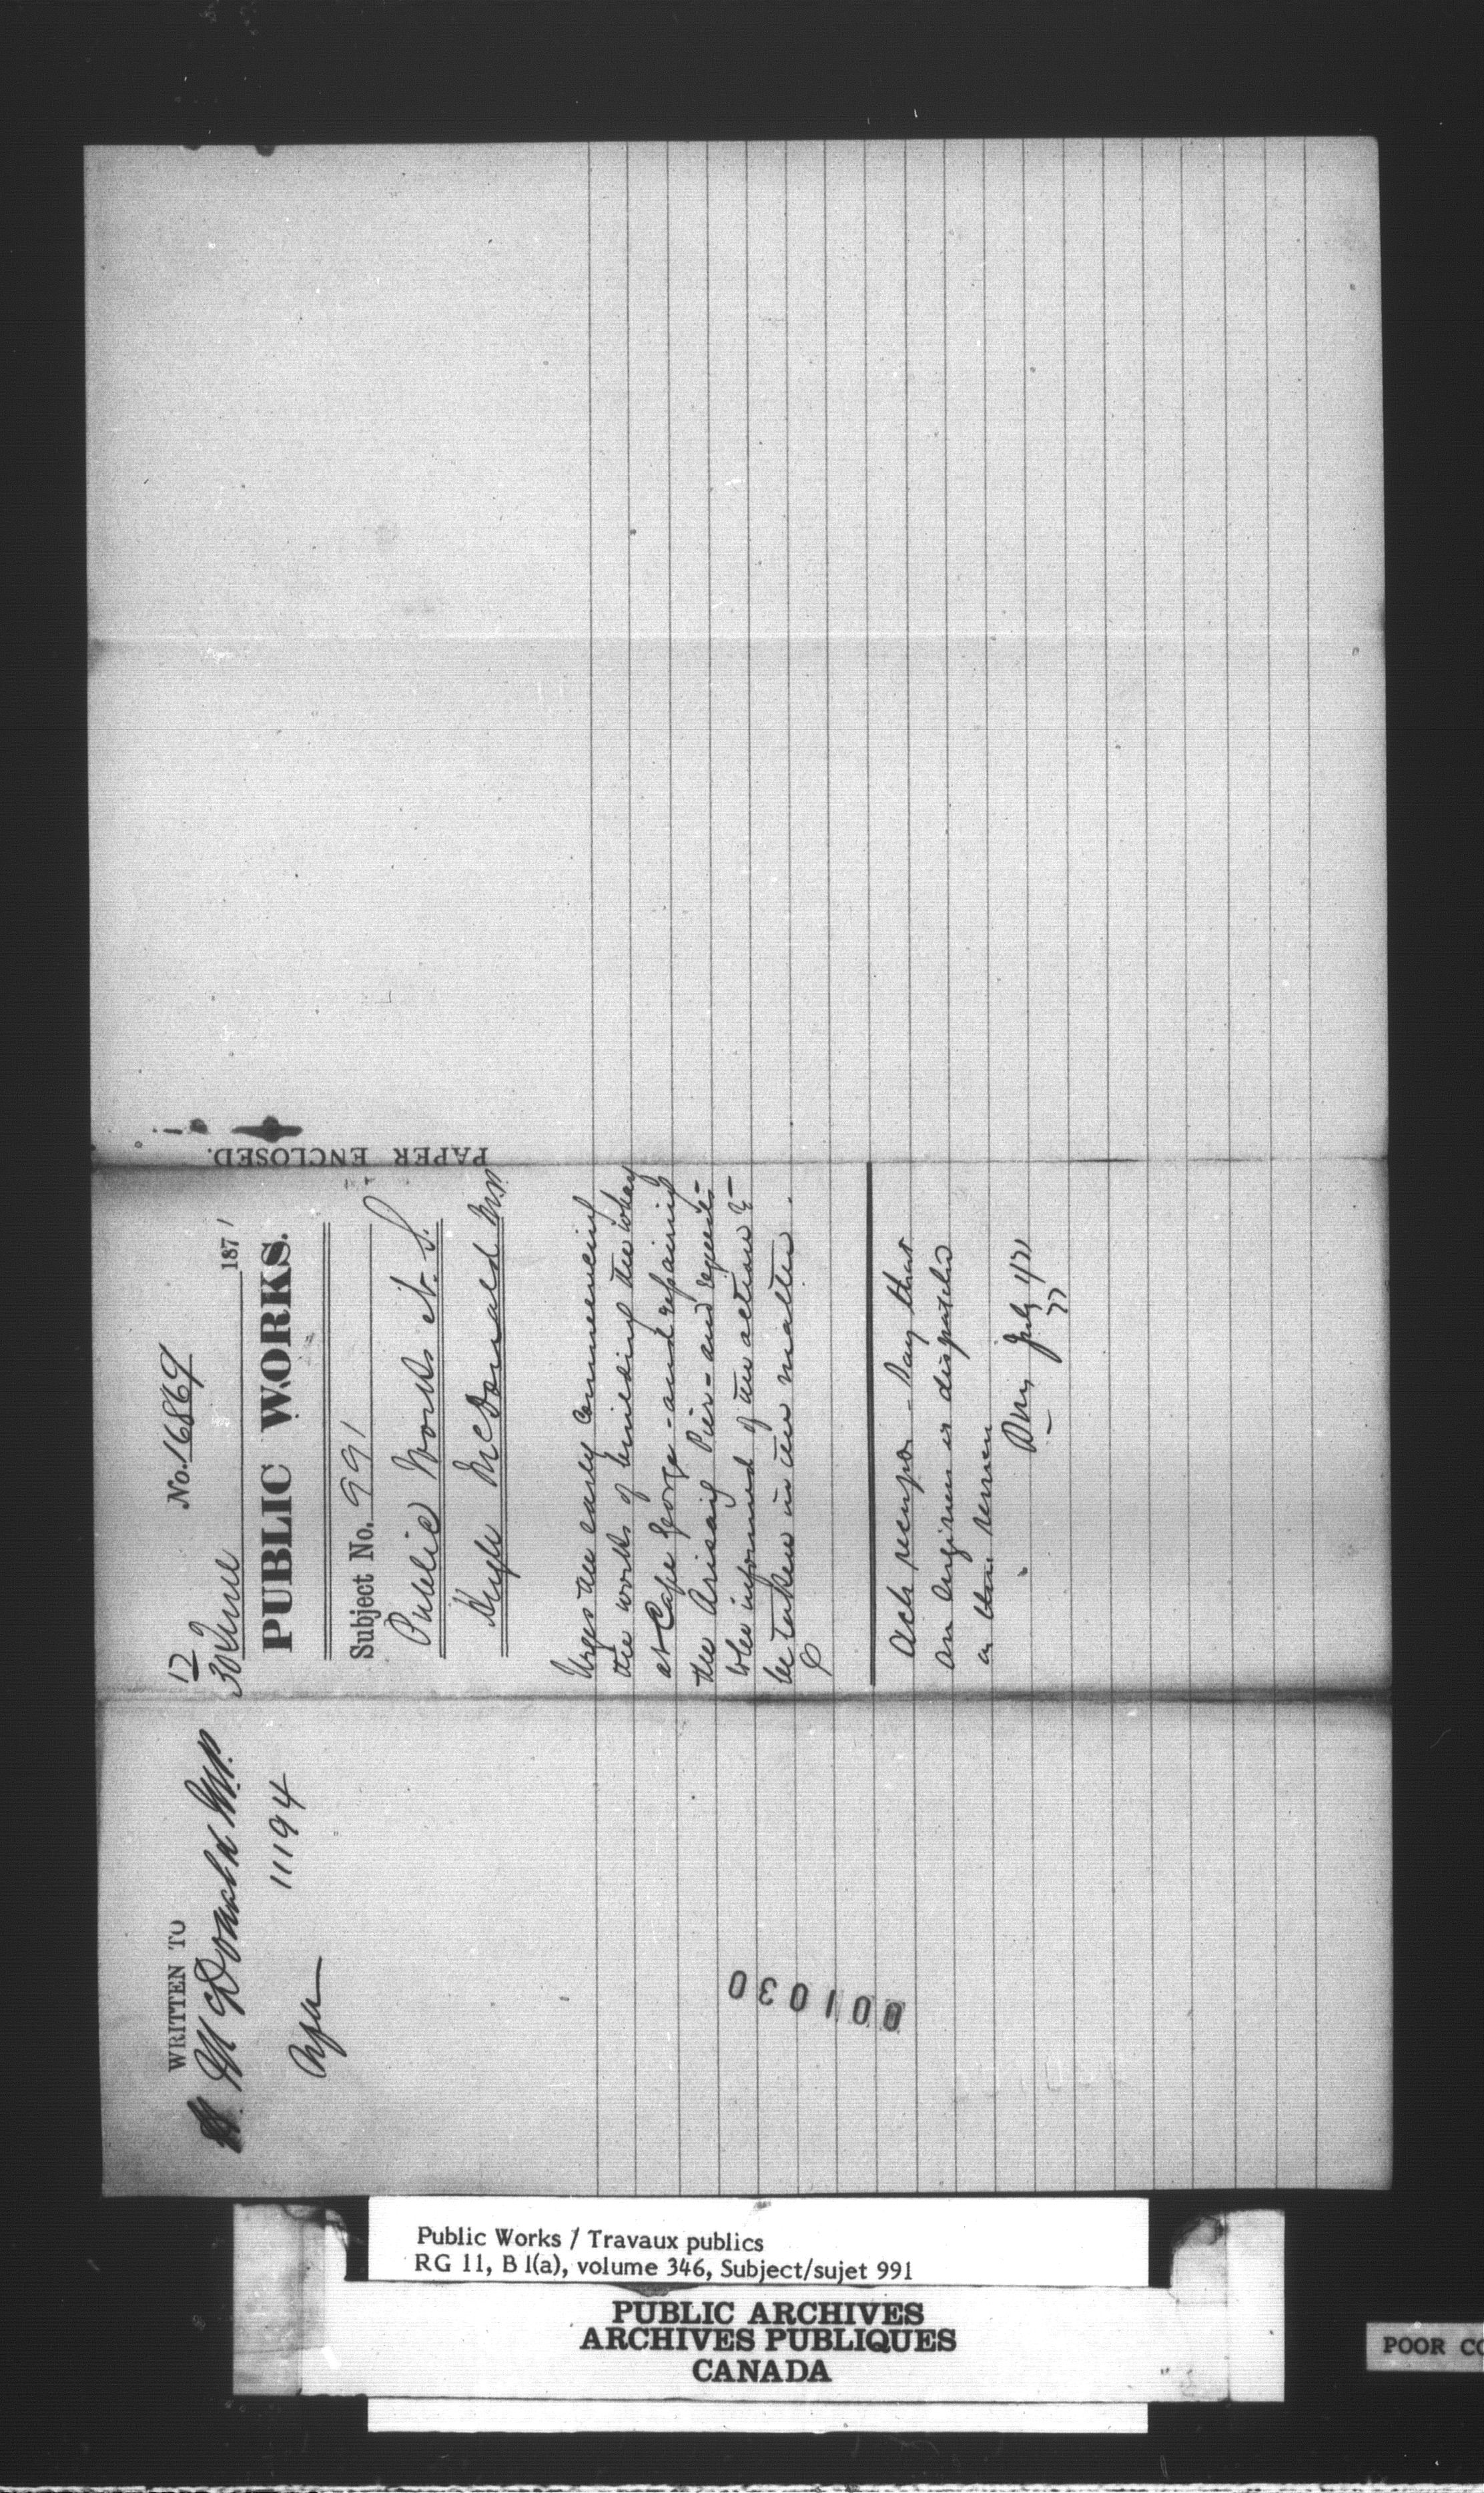 WRITTEN TO
H. McDonald M.P.
11194
17
No. 16869
30 June 1871
PUBLIC WORKS.
Subject No. 991
Public Works N. S.
Hugh McDonald M.P.
Urges the early commencing
the works of building the whary
at Cape George - and repairing
the Arisaig Pier - and requests
to be informed of the action to
be taken in the matter.
Ack receipt - Say that
an Engineer is dispatched
July 4/71
PAPER ENCLOSED.
001030
Public Works / Travaux publics
RG 11, B 1(a), volume 346, Subject/sujet 991
PUBLIC ARCHIVES
ARCHIVES PUBLIQUES
CANADA
POOR CO